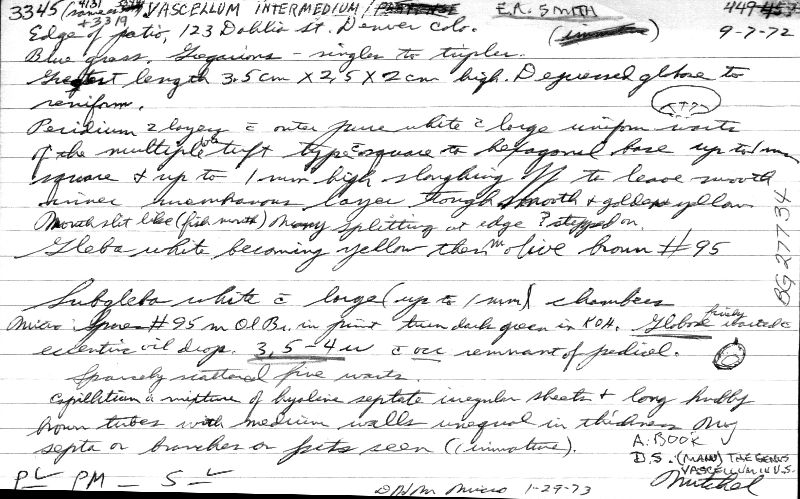 3345 (same as 4131 + 3319) VASCELLUM INTERMEDIUM / E.A. SMITH 449
Edge of patio, 123 Dahlia St. Denver Colo. 9-7-72
Blue grass. Gregarious - singles to triples.
Greatest length 3.5 cm X 2.5 X 2 cm high. Depressed globose to
reniform.
Peridium 2 layers c̄ outer pure white c̄ large uniform warts
of the multiple tuft type c̄ square to hexagonal base up to 1 mm
square + up to 1 mm high sloughing off to leave smooth
inner membranous layer tough smooth + golden yellow
Mouth slit like (fish mouth) splitting at edge ? stepped on.
Gleba white becoming yellow then m olive brown #95
BG 27734
Subgleba white c̄ large (up to 1 mm) chambers
Micro: Spores #95 m Ol Br. in print turn dark green in KOH. Globose finely warted c̄
eccentric oil drop. 3.5-4 u c̄ occ remnant of pedicel.
Sparsely scattered fine warts
Capillitium a mixture of hyaline septate irregular sheets + long
brown tubes with medium walls unequal in thickness
septa or branches or pits seen (immature).
A. BOOK
D.S. (MANU) THE GENUS
VASCELLUM IN U.S.
P ✓ PM – S ✓
Micro 1-29-73
Mitchel